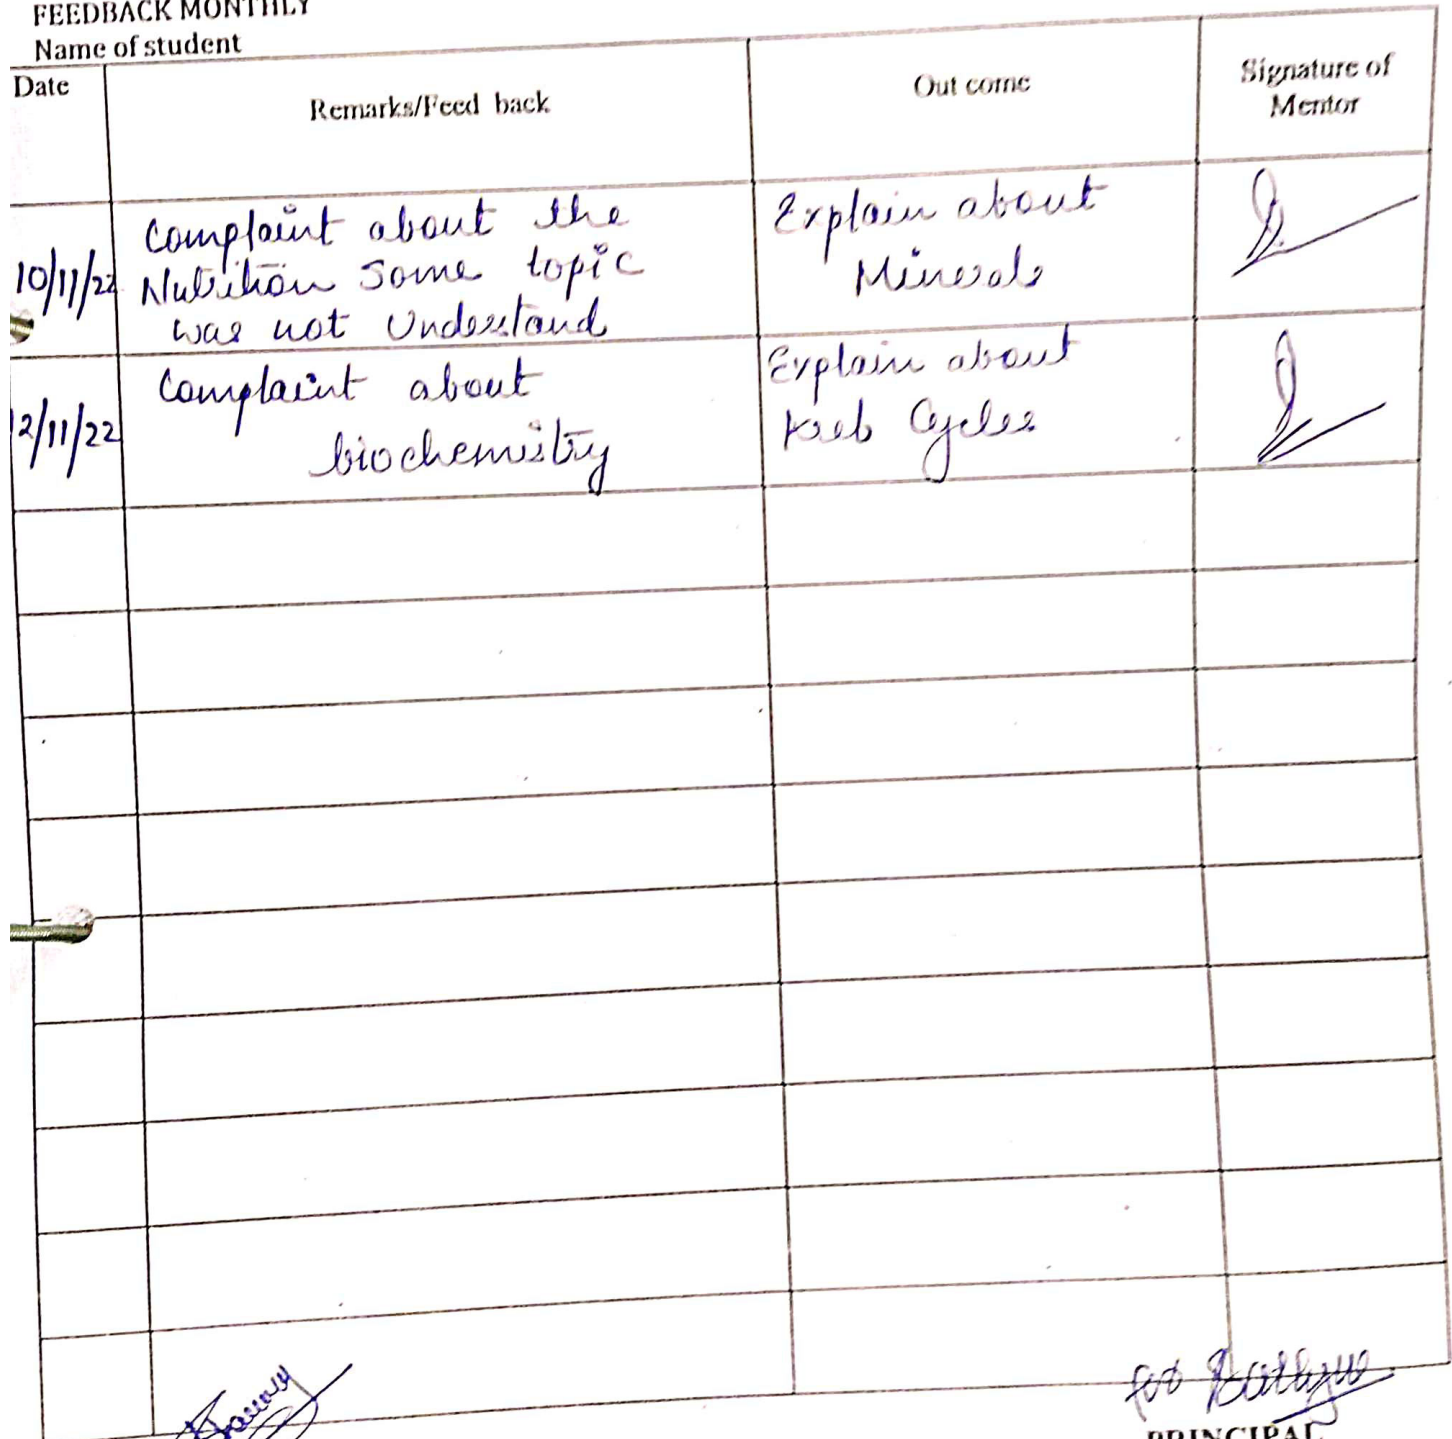 FEEDBACK MONTHLY
Name of student
Date
Remarks/Feed back
Out come
Signature of
Mentor
10/11/22
Complaint about the
Nutrition Some topic
was not Understand
Explain about
Minerals
2/11/22
Complaint about
biochemistry
Explain about
Kreb Cycles
for
PRINCIPAL